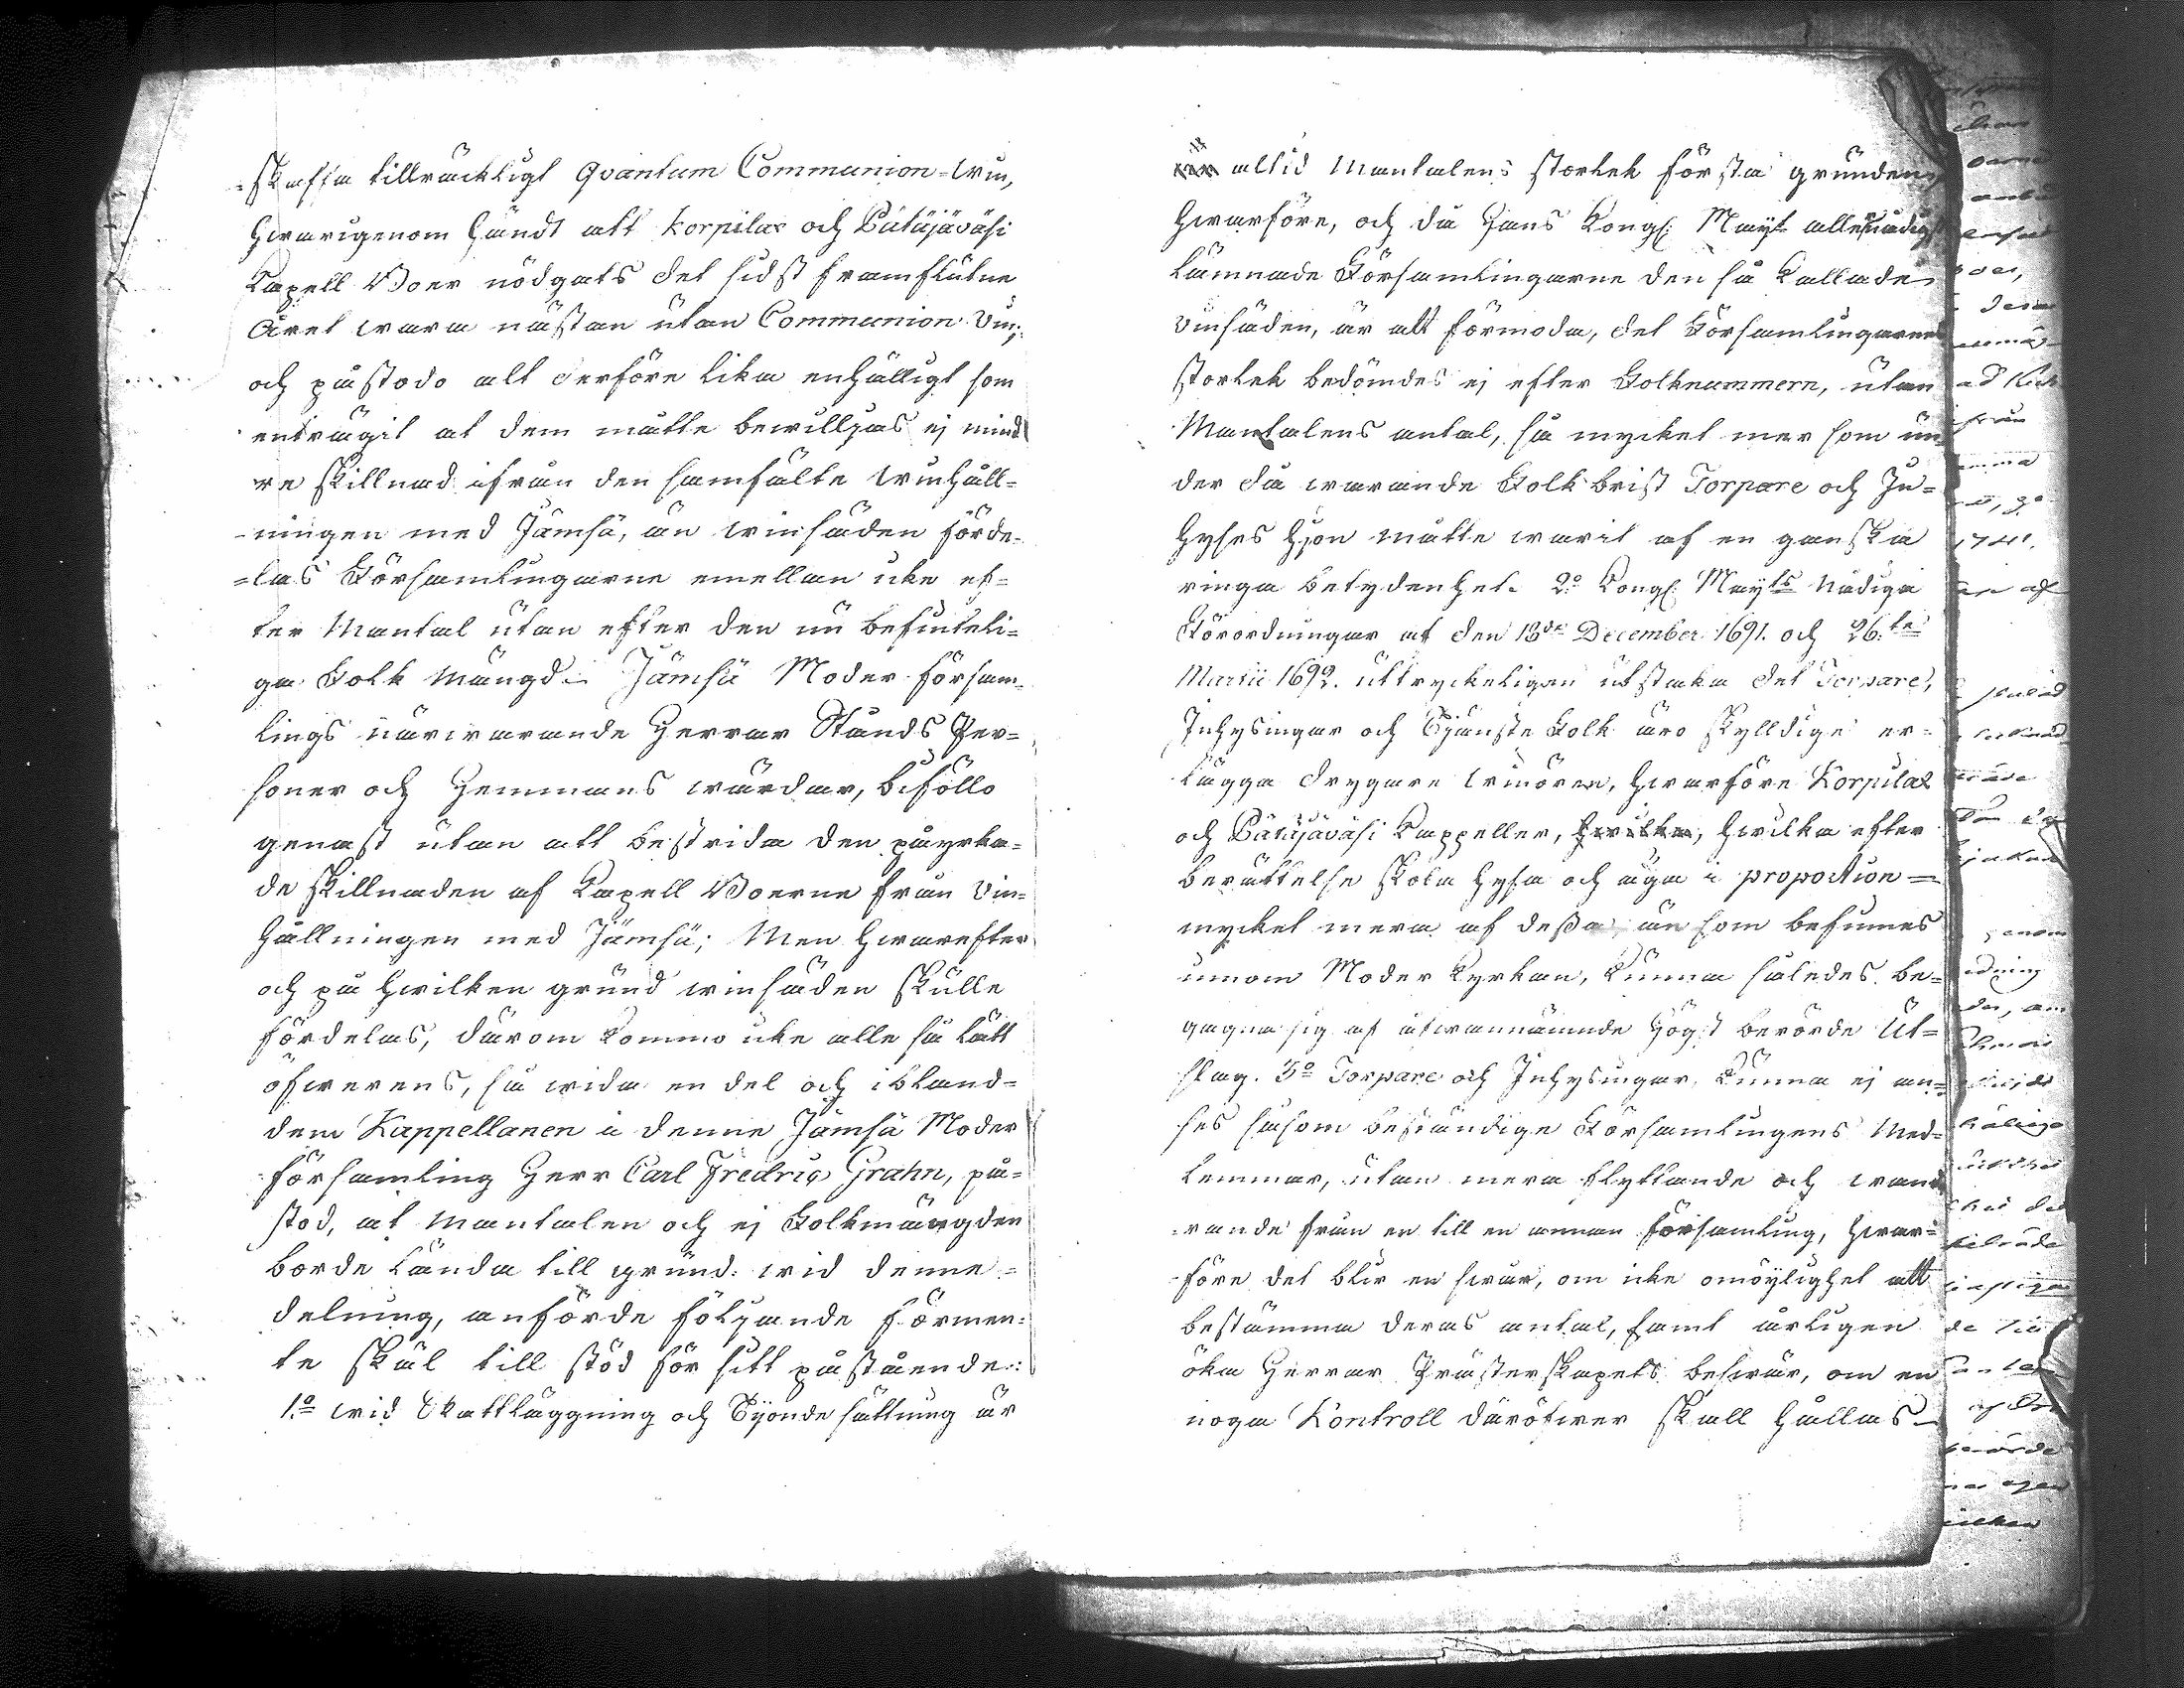 -skaffa tillräckligt Qvantum Communion-win,
hwarigenom händt att Korpilax och Pätäjäväsi
Capell Boer nödgats det sidst framflutne
Året wara nästan utan Communion Vin;
och påstodo alt derföre lika enhälligt som
enträgit at dem måtte bewilljas ej mind
re skillnad ifrån den samfälte winhåll-
-ningen med Jämsä, än winsäden förde-
-las Församlingarne emellan icke ef-
ter Mantal utan efter den nu befinteli-
ga Folk mängd. Jämsä Moder försam-
lings närwarande Herrar Stånds Per-
soner och Hemmans wärdar, biföllo
genast utan att bestrida den påyrka-
de skillnaden af Capell Boerne från Vin-
hållningen med Jämsä; Men hwarefter
och på hwilken grund winsäden skulle
fördelas, därom kommo icke alle så lätt
öfwerens, så wida en del och ibland-
dem Kappellanen i denne Jämsä Moder
församling Herr Carl Fredric Grahn, på-
stod, at Mantalen och ej Folkmängden
borde lända till grund wid denne-
delning, anförde följande förmen-
te skäl till stöd för sitt påstående:
1:o wid Skattläggning och Tijonde sättning är
är altid Mantalens storlek första grunden,
hwarföre, och då Hans Kongl: Mayt allernådigst
lämnade Församlingarne den så kallade
Vinsäden, är att förmoda, det Församlingarnes
storlek bedömdes ej efter Folknummern, utan
Mantalens antal, så mycket mer som un
der då warande Folkbrist Torpare och In-
hyses hjon måtte warit af en ganska
ringa betydenhet. 2:o Kongl: Mayts Nådiga
Förordningar af den 18de December 1691. och 26:te
Martii 1692. uttryckeligen utstaka det Torpare,
Inhysingar och Tjänste Folk äro skylldige er-
lägga drygare winören, hwarföre Korpilax
och Pätäjäväsi Cappeller, hwilka, hwilka efter
berättelse skola hysa och äga i proportion
mycket mera af deßa, än som befinnes
innom Moder Kyrkan, kunna således be-
gagna sig af ofwannämnde högst berörde Ut-
slag. 3:o Torpare och Inhysingar kunna ej an-
ses såsom beständige Församlingens Med-
lemmar, utan mera flyttande och wand
-rande från en till en annan församling, hwar-
-före det blir en swår, om icke omöylighet att
bestämma deras antal, samt årligen
öka Herrar Prästerskapets beswär, om en
noga Kontroll däröfwer skall hållas